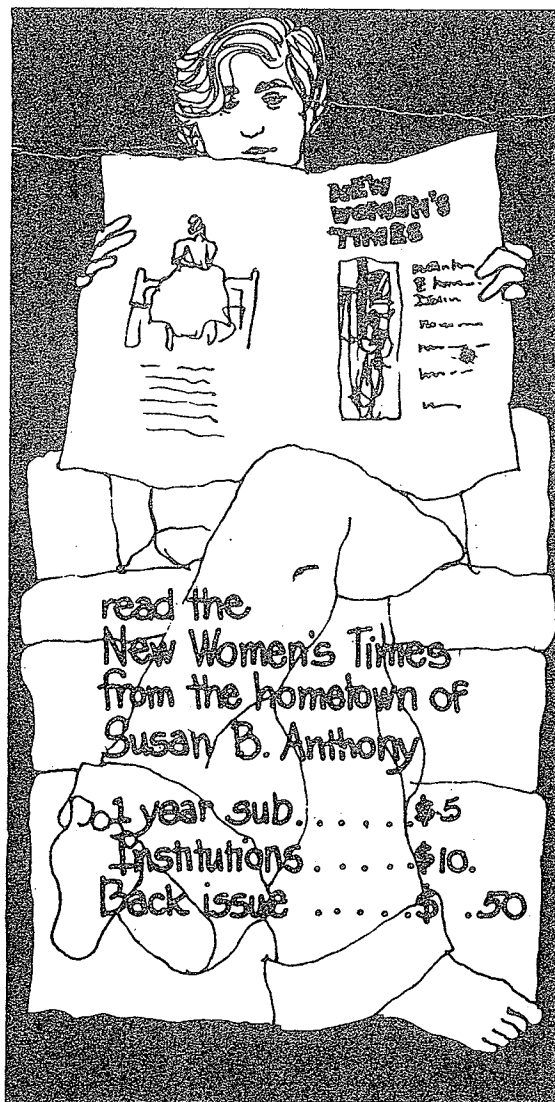 NEW
WOMEN'S
TIMES
read the
New Women's Times
from the hometown of
Susan B. Anthony
1 year sub. . . . . . $5
Institutions . . . . . $10.
Back issue . . . . . $ .50